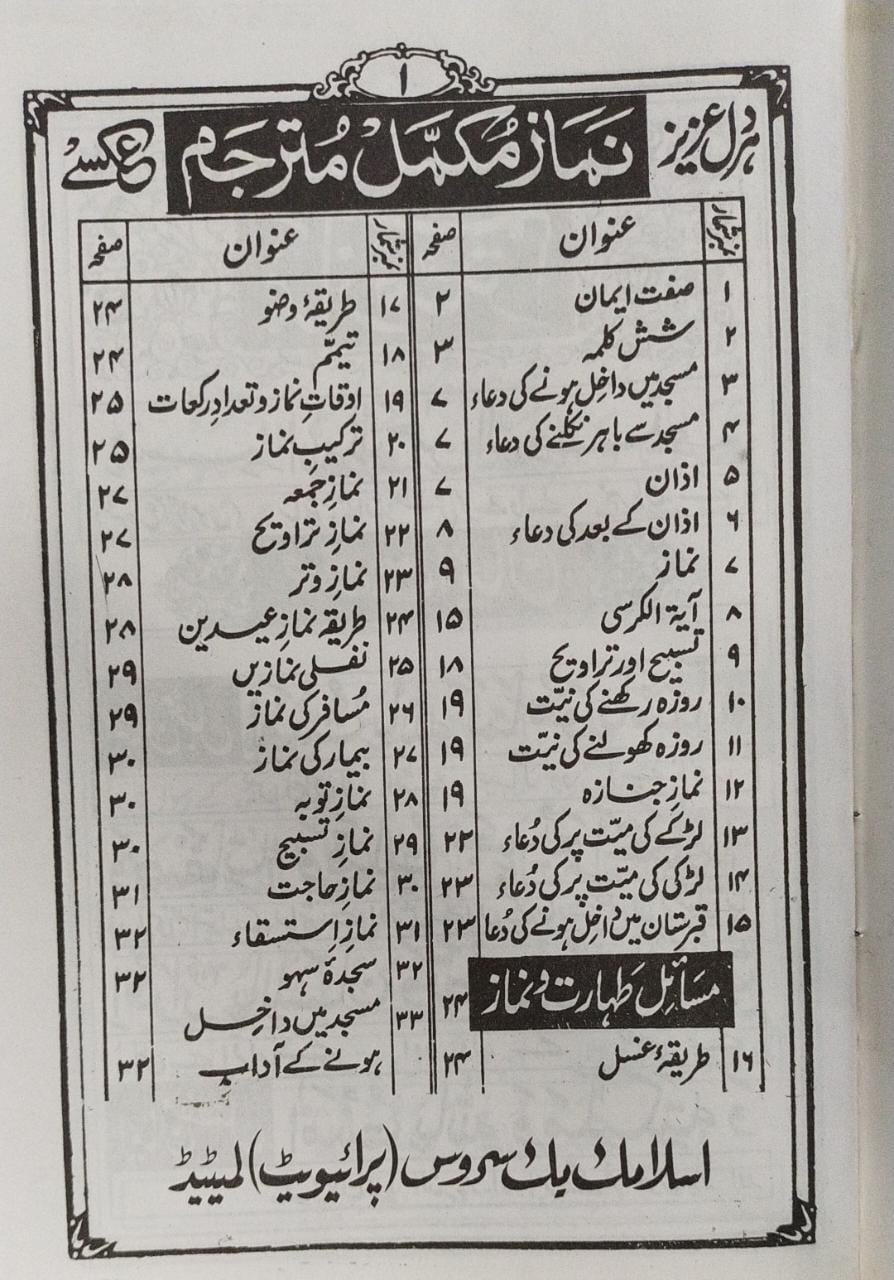 ۱
ہر دل عزیز نماز مکمل مترجم عکسی
نمبر شمار عنوان صفحہ
۱ صفت ایمان ۲
۲ شش کلمہ ۳
۳ مسجد میں داخل ہونے کی دعاء ۷
۴ مسجد سے باہر نکلنے کی دعاء ۷
۵ اذان ۷
۶ اذان کے بعد کی دعاء ۸
۷ نماز ۹
۸ آیۃ الکرسی ۱۵
۹ تسبیح اور تراویح ۱۸
۱۰ روزہ رکھنے کی نیّت ۱۹
۱۱ روزہ کھولنے کی نیّت ۱۹
۱۲ نمازِ جنازہ ۱۹
۱۳ لڑکے کی میّت پر کی دُعاء ۲۲
۱۴ لڑکی کی میّت پر کی دُعاء ۲۳
۱۵ قبرستان میں داخل ہونے کی دُعا ۲۳
مسَائل طہارت و نماز ۲۴
۱۶ طریقۂ غسل ۲۴
نمبر شمار عنوان صفحہ
۱۷ طریقۂ وضو ۲۴
۱۸ تیمّم ۲۴
۱۹ اوقاتِ نماز و تعدادِ رکعات ۲۵
۲۰ ترکیبِ نماز ۲۵
۲۱ نمازِ جمعہ ۲۷
۲۲ نمازِ تراویح ۲۷
۲۳ نمازِ وتر ۲۸
۲۴ طریقہ نمازِ عیدین ۲۸
۲۵ نفلی نمازیں ۲۹
۲۶ مُسافر کی نماز ۲۹
۲۷ بیمار کی نماز ۳۰
۲۸ نمازِ توبہ ۳۰
۲۹ نمازِ تسبیح ۳۰
۳۰ نمازِ حاجت ۳۱
۳۱ نمازِ اِستسقاء ۳۲
۳۲ سجدۂ سہو ۳۲
۳۳ مسجد میں داخِل
ہونے کے آداب ۳۲
اسلامک بک سروس (پرائیویٹ) لمیٹیڈ